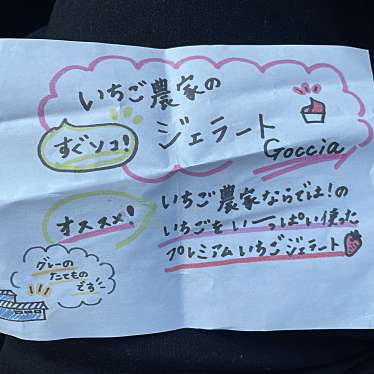 いちご農家の
ジェラート
すぐソコ!
Goccia
オススメ!
いちご農家ならでは!の
いちごをいーっぱい使った
プレミアムいちごジェラート
グレーの
たてもの
です